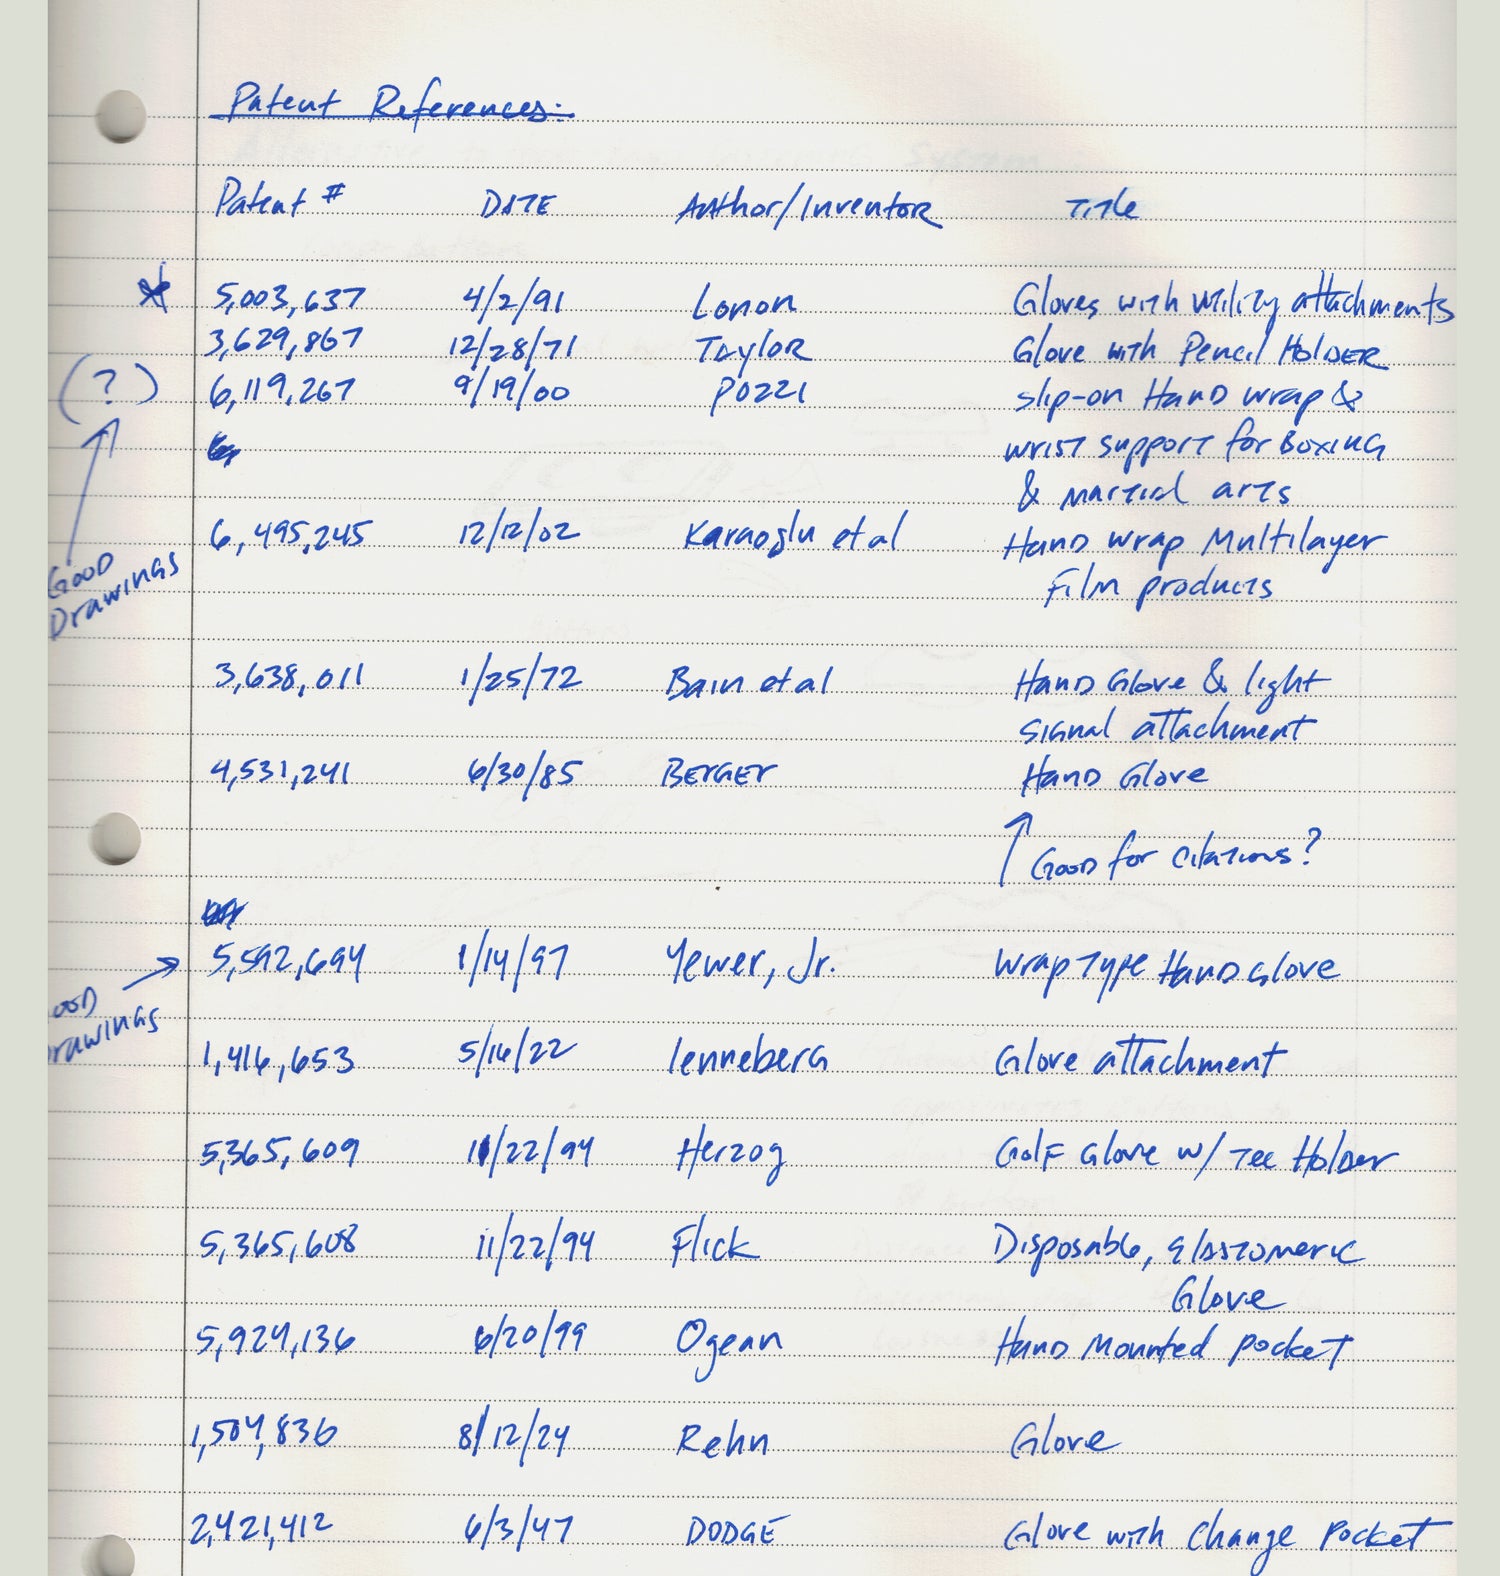 Patent References:
Patent # DATE Author/Inventor Title
* 5,003,637 4/2/91 Lonon Gloves with utility attachments
3,629,867 12/28/71 Taylor Glove with Pencil Holder
(?) 6,119,267 9/19/00 Pozzi slip-on Hand wrap &
wrist support for Boxing
& martial arts
6,495,245 12/12/02 Karaoglu et al Hand wrap Multilayer
Film products
Good
Drawings
3,638,011 1/25/72 Bain et al Hand Glove & light
signal attachment
4,531,241 6/30/85 BERGER Hand Glove
↑ Good for citations?
5,592,694 1/14/97 Yewer, Jr. Wrap Type Hand Glove
→
ood
rawings
1,416,653 5/16/22 lenneberg Glove attachment
5,365,609 11/22/94 Herzog Golf Glove w/ Tee Holder
5,365,608 11/22/94 Flick Disposable, Elastomeric
Glove
5,924,136 6/20/99 Ogean Hand Mounted pocket
1,504,836 8/12/24 Rehn Glove
2,421,412 6/3/47 DODGE Glove with Change Pocket